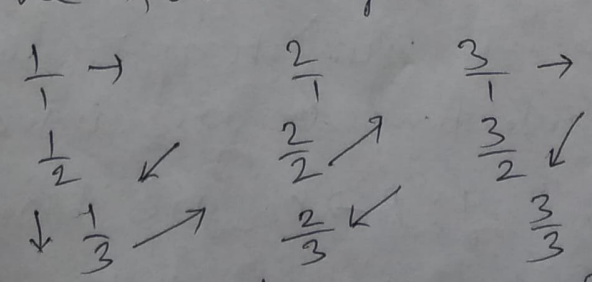 1/1 → 2/1 3/1 →
1/2 ↙ 2/2 ↗ 3/2 ↙
↓ 1/3 ↗ 2/3 ↙ 3/3